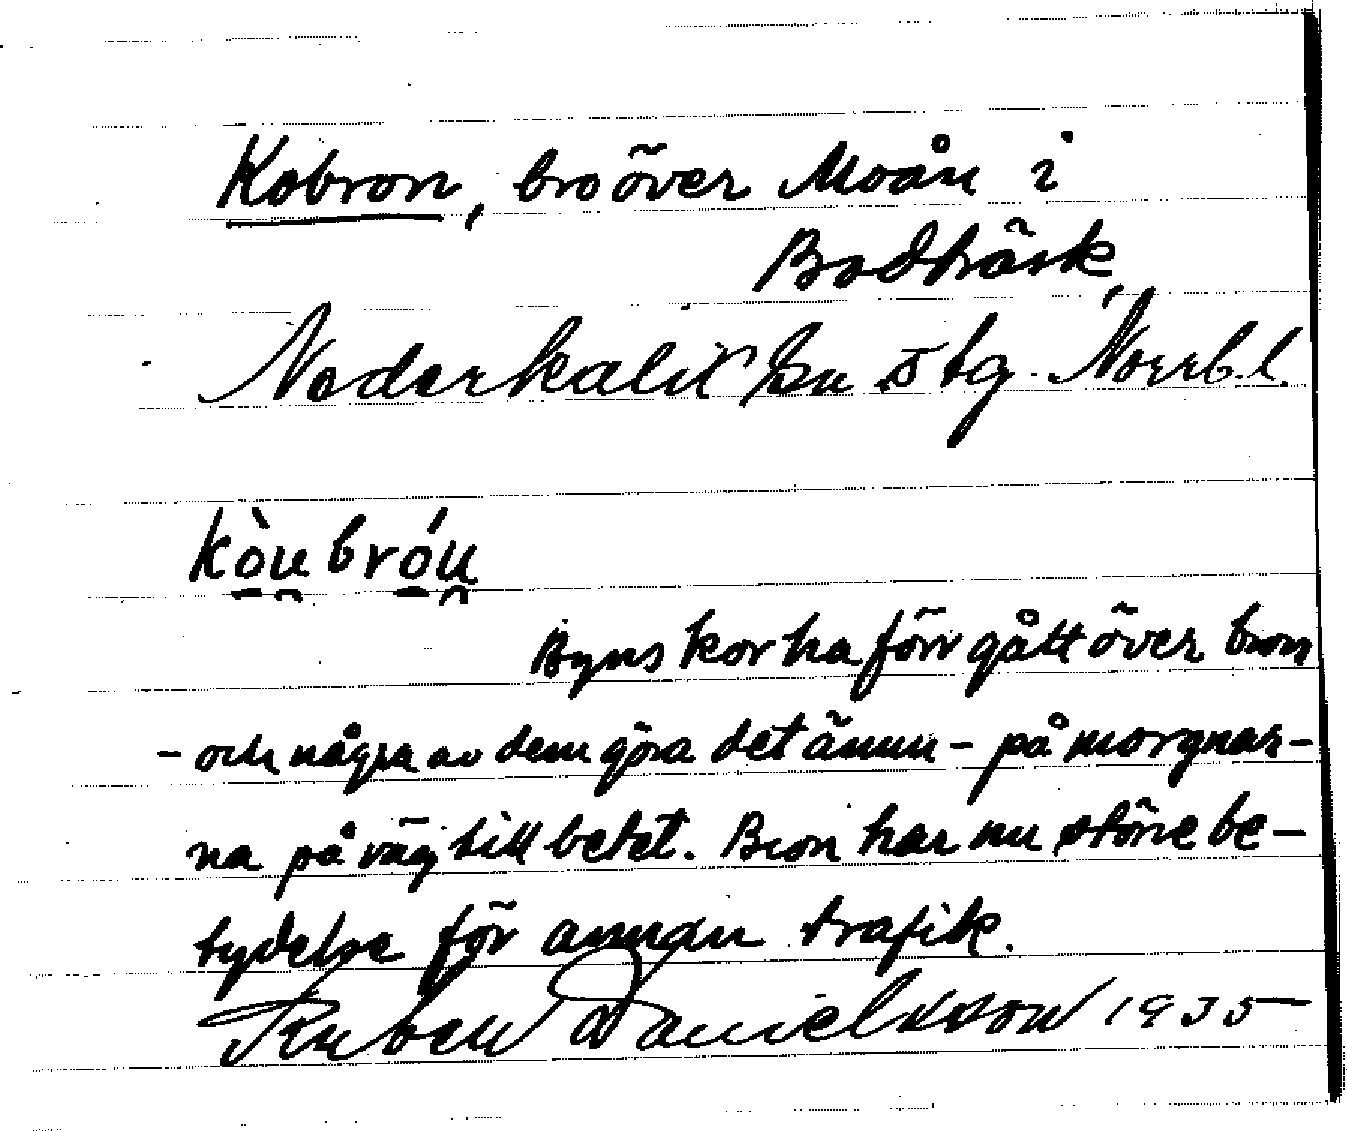 Kobron, bro över Moån i
Bodträsk,
Nederkalix sn Ö tg. Norrb. l.
kòu̯bróu̯
Byns kor ha förr gått över bron
- och några av dem göra det ännu - på morgnar-
na på väg till betet. Bron har nu större be-
tydelse för annan trafik.
Ruben Danielsson 1935